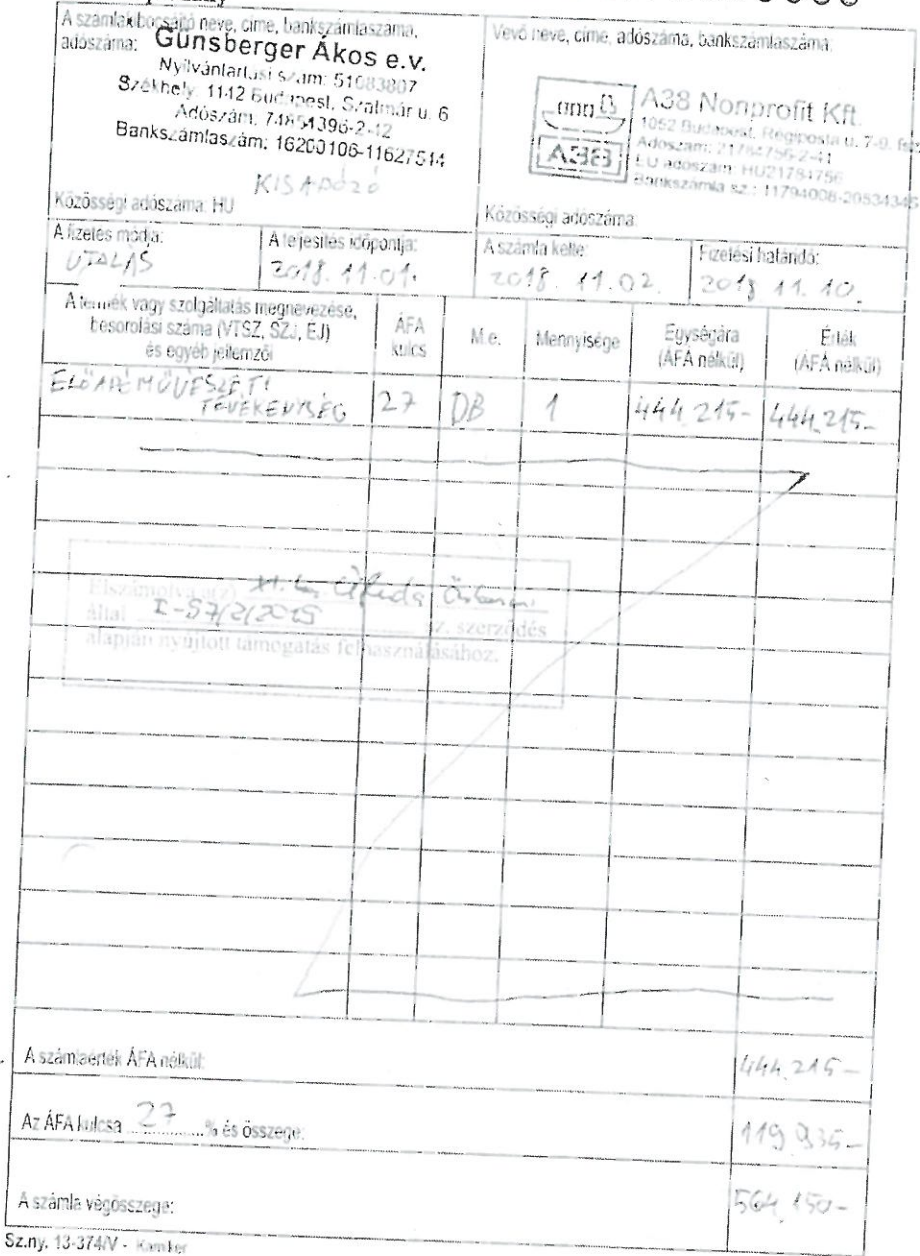 A számlakibocsátó neve, címe, bankszámlaszáma,
adószáma:
Günsberger Ákos e.v.
Nyilvántartási szám: 51083807
Székhely: 1142 Budapest, Szatmár u. 6
Adószám: 74854396-2-42
Bankszámlaszám: 16200106-11627514
KISADÓZÓ
Közösségi adószáma: HU
Vevő neve, címe, adószáma, bankszámlaszáma:
A38 Nonprofit Kft.
1052 Budapest, Régiposta u. 7-9.
Adószám: 21784756-2-41
EU adószám: HU21784756
Bankszámla sz.: 11794008-20534346
A38
Közösségi adószáma:
A fizetés módja:
UTALÁS
A teljesítés időpontja:
2018. 11. 01.
A számla kelte:
2018. 11. 02.
Fizetési határidő:
2018 11. 10.
A termék vagy szolgáltatás megnevezése,
besorolási száma (VTSZ, SZJ, EJ)
és egyéb jellemzői
ÁFA
kulcs
M.e.
Mennyisége
Egységára
(ÁFA nélkül)
Érték
(ÁFA nélkül)
ELŐADÓMŰVÉSZETI
TEVÉKENYSÉG 27 DB 1 444 215- 444.215-
Elszámolva a(z) XI. ker.
által I-57/2/2015 sz. szerződés
alapján nyújtott támogatás felhasználásához.
A számlaérték ÁFA nélkül: 444.215-
Az ÁFA kulcsa 27 % és összege: 119 935-
A számla végösszege: 564.150-
Sz.ny. 13-374/V - Kamker